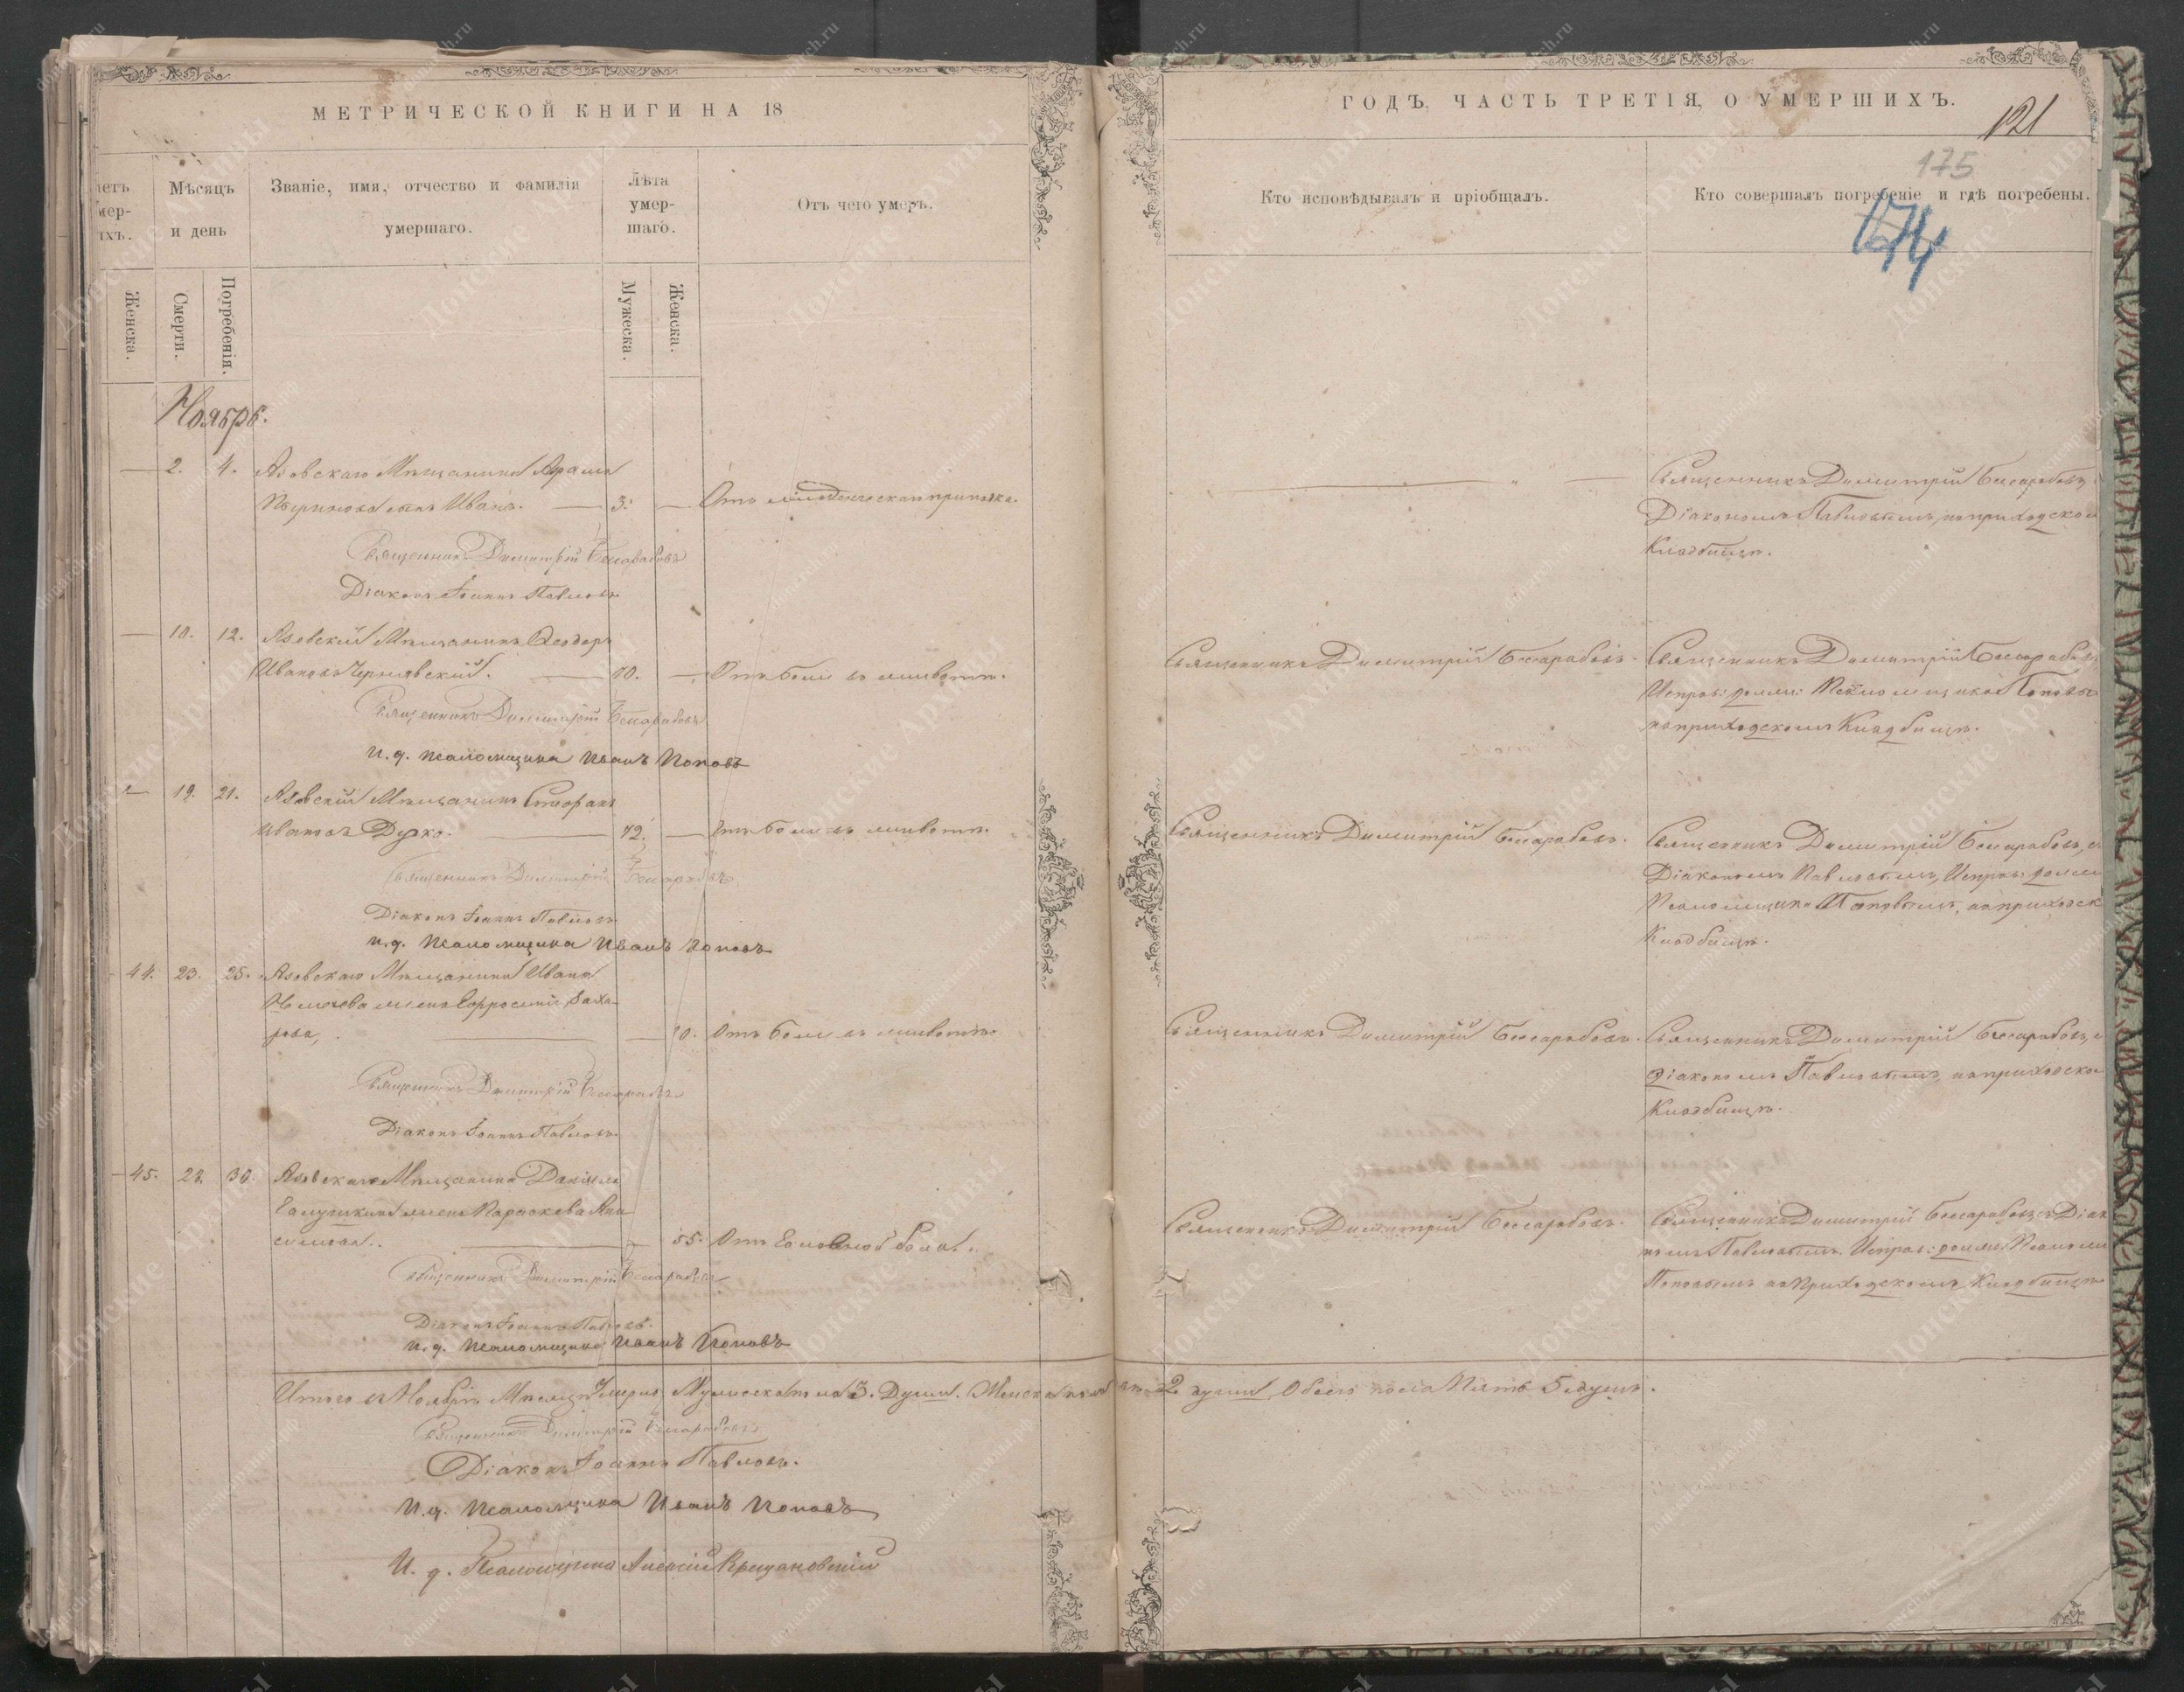 МЕТРИЧЕСКОЙ КНИГИ НА 18
ГОДЪ, ЧАСТЬ ТРЕТІЯ, О УМЕРШИХЪ.
121
175
174
Мѣсяцъ и день
Званіе, имя, отчество и фамилія умершаго.
Лѣта умер-
шаго.
Отъ чего умеръ.
Кто исповѣдывалъ и пріобщалъ.
Кто совершалъ погребеніе и гдѣ погребены.
Женска.
Смерти.
Погребенія.
Мужеска.
Женска.
Ноябрь.
2. 4. Азовскаго Мѣщанина
сынъ Иванъ. 3. Отъ младенческаго припадка.
Священникъ Димитрій Бессарабовъ
Діакономъ Павловымъ, на приходском
Кладбищѣ.
Священникъ Димитрій Бессарабовъ
Діаконъ Іоаннъ Павловъ
10. 12. Азовскій Мѣщанинъ Ѳеодоръ
Ивановъ Чернявскій. 70. Отъ боли въ животѣ.
Священникъ Димитрій Бессарабовъ.
Священникъ Димитрій Бессарабовъ
Исправ: долж: Псаломщика Поповы
на приходскомъ Кладбищѣ.
Священникъ Димитрій Бессарабовъ
И. д. Псаломщика Иванъ Поповъ
19. 21. Азовскій Мѣщанинъ Стефанъ
Ивановъ 72. Отъ боли въ животѣ.
Священникъ Димитрій Бессарабовъ.
Священникъ Димитрій Бессарабовъ, съ
Діакономъ Павловымъ, Исправ: долж
Псаломщика Поповымъ, на приходск
Кладбищѣ.
Священникъ Димитрій Бессарабовъ
Діаконъ Іоаннъ Павловъ
И. д. Псаломщика Иванъ Поповъ
44. 23. 25. Азовскаго Мѣщанина Ивана
жена Евфросинія Заха-
рова, 0. Отъ боли въ животѣ.
Священникъ Димитрій Бессарабовъ.
Священникъ Димитрій Бессарабовъ, съ
Діакономъ Павловымъ, на приходско
Кладбищѣ.
Священникъ Димитрій Бессарабовъ
Діаконъ Іоаннъ Павловъ
45. 28. 30. Азовскаго Мѣщанина Даніила
Галушкина жена Параскева Ани
симова. 55. Отъ головной боли.
Священникъ Димитрій Бессарабовъ.
Священникъ Димитрій Бессарабовъ съ Діак
номъ Павловымъ. Исправ: долж: Псаломщ
Поповымъ на Приходскомъ Кладбищѣ
Священникъ Димитрій Бессарабовъ
Діаконъ Іоаннъ Павловъ.
И. д. Псаломщика Иванъ Поповъ
Итого въ Ноябрѣ Мѣсяцѣ Умерло Мужеска пола 3. Души. Женска пола 2 души, Обоего пола Пять 5 душъ.
Священникъ Димитрій Бессарабовъ
Діаконъ Іоаннъ Павловъ.
И. д. Псаломщика Иванъ Поповъ
И. д. Псаломщика Алексій Крыжановскій
Донские Архивы
donarch.ru
донархив.рф